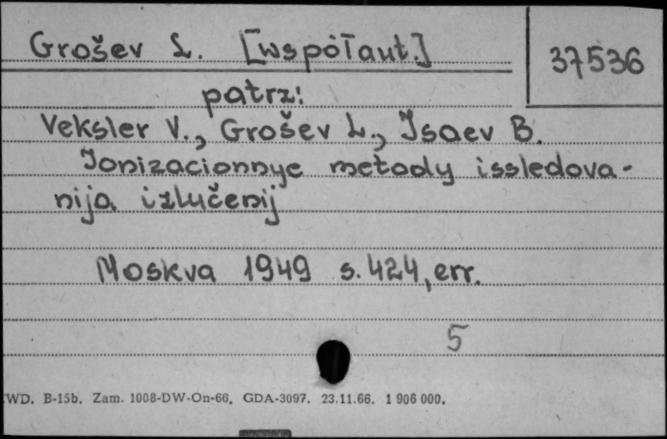 Grošev L. [współaut.]
37536
patrz:
Veksler V., Grošev L., Isaev B.
Ionizacionnye metody issledova-
nija izlučenij
Moskva 1949 s. 424, err.
5
WD. B-15b. Zam. 1008-DW-On-66. GDA-3097. 23.11.66. 1 906 000.